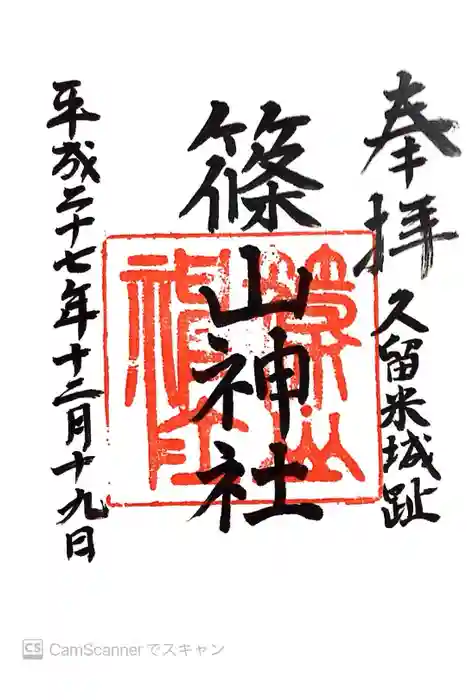 奉拝
久留米城趾
篠山神社
平成二十七年十二月十九日
CS CamScannerでスキャン